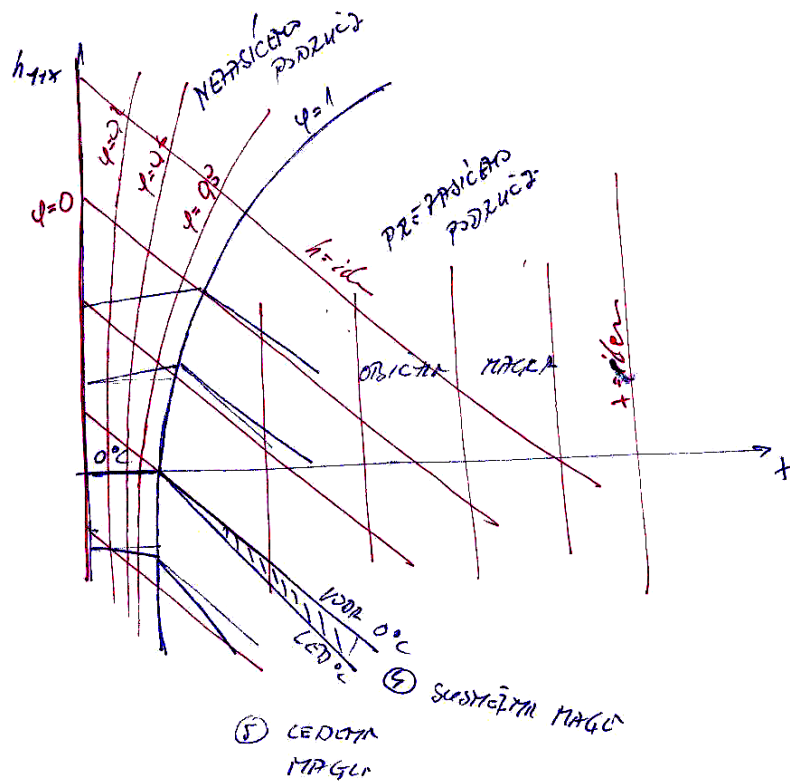 h₁₊ₓ
NEZASIĆENO
PODRUČJE
φ=1
φ=0
φ=0,8
PREZASIĆENO
PODRUČJE
h=id.
OBIČNA MAGLA
0°C
x
VODA 0°C
LED 0°C
④ SUSNEŽNA MAGLA
⑤ LEDENA
MAGLA